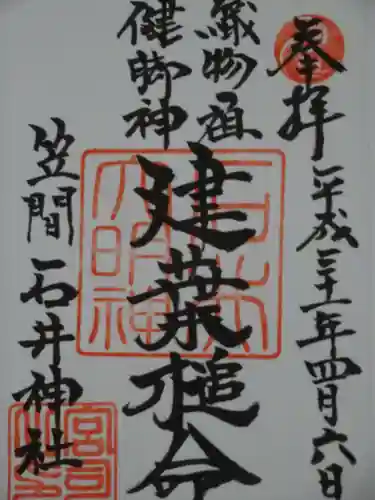 奉拝
平成三十一年四月六日
織物祖
健脚神
建葉槌命
笠間
石井神社